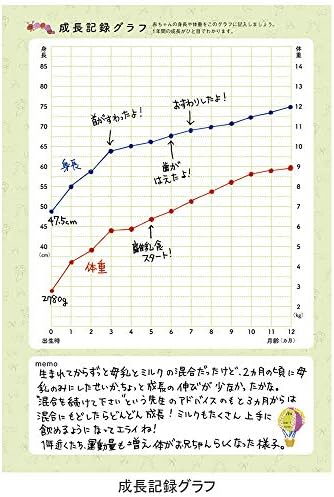 成長記録グラフ
赤ちゃんの身長や体重をこのグラフに記入しましょう。
1年間の成長がひと目でわかります。
身長
体重
85
80
75
70
65
60
55
50
45
40
(cm)
14
13
12
11
10
9
8
7
6
5
4
3
2
(kg)
首がすわったよ!
おすわりしたよ!
身長
歯が
はえたよ!
47.5cm
体重
離乳食
スタート!
2780g
0 1 2 3 4 5 6 7 8 9 10 11 12
出生時
月齢(ヵ月)
memo
生まれてからずっと母乳とミルクの混合だったけど、2ヵ月の頃に母
乳のみにしたせいか、ちょっと成長の伸びが少なかったかな。
"混合を続けて下さい"という先生のアドバイスのもと3ヵ月からは
混合にもどしたらどんどん成長!ミルクもたくさん上手に
飲めるようになってエライね!
1年近くたち、運動量も増え体がお兄ちゃんらしくなった様子。
成長記録グラフ